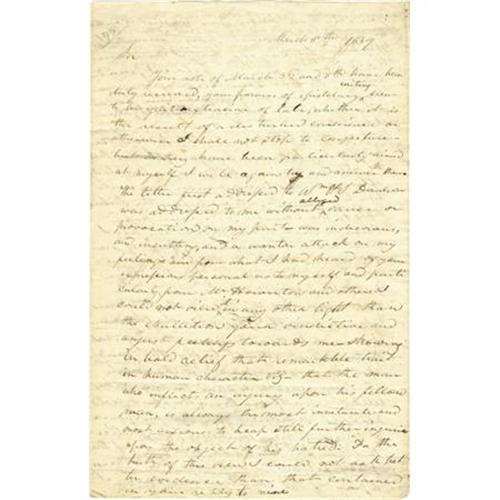 March 8th 1839
Sir
Your note of March 3rd and 7th have been
duly received, your powers of epistolary writing seem
to be of late, whether it is
the result of a disturbed conscience or
otherwise I shall not stop to conjecture
but as they have been particularly aimed
at myself I will be again and answer them
The letter first addressed to Wm
was addressed to me without alleged cause or
provocation on my part was indecorous,
and insulting, and a wanton attack on my
feelings and from what I had heard of your
expressions personal with myself and parti
cularly from Mr and others I
could not view it in any other light than
the ebullition of your vindictive and
unjust feelings towards me showing
in bold relief that remarkable trait
in human character viz that the man
who inflicts an injury upon his fellow
man, is always the most inveterate and
most anxious to heap still further injuries
upon the object of his hatred. In the
truth of this view I could not ask bet
ter evidence than that contained
in your reply to mine